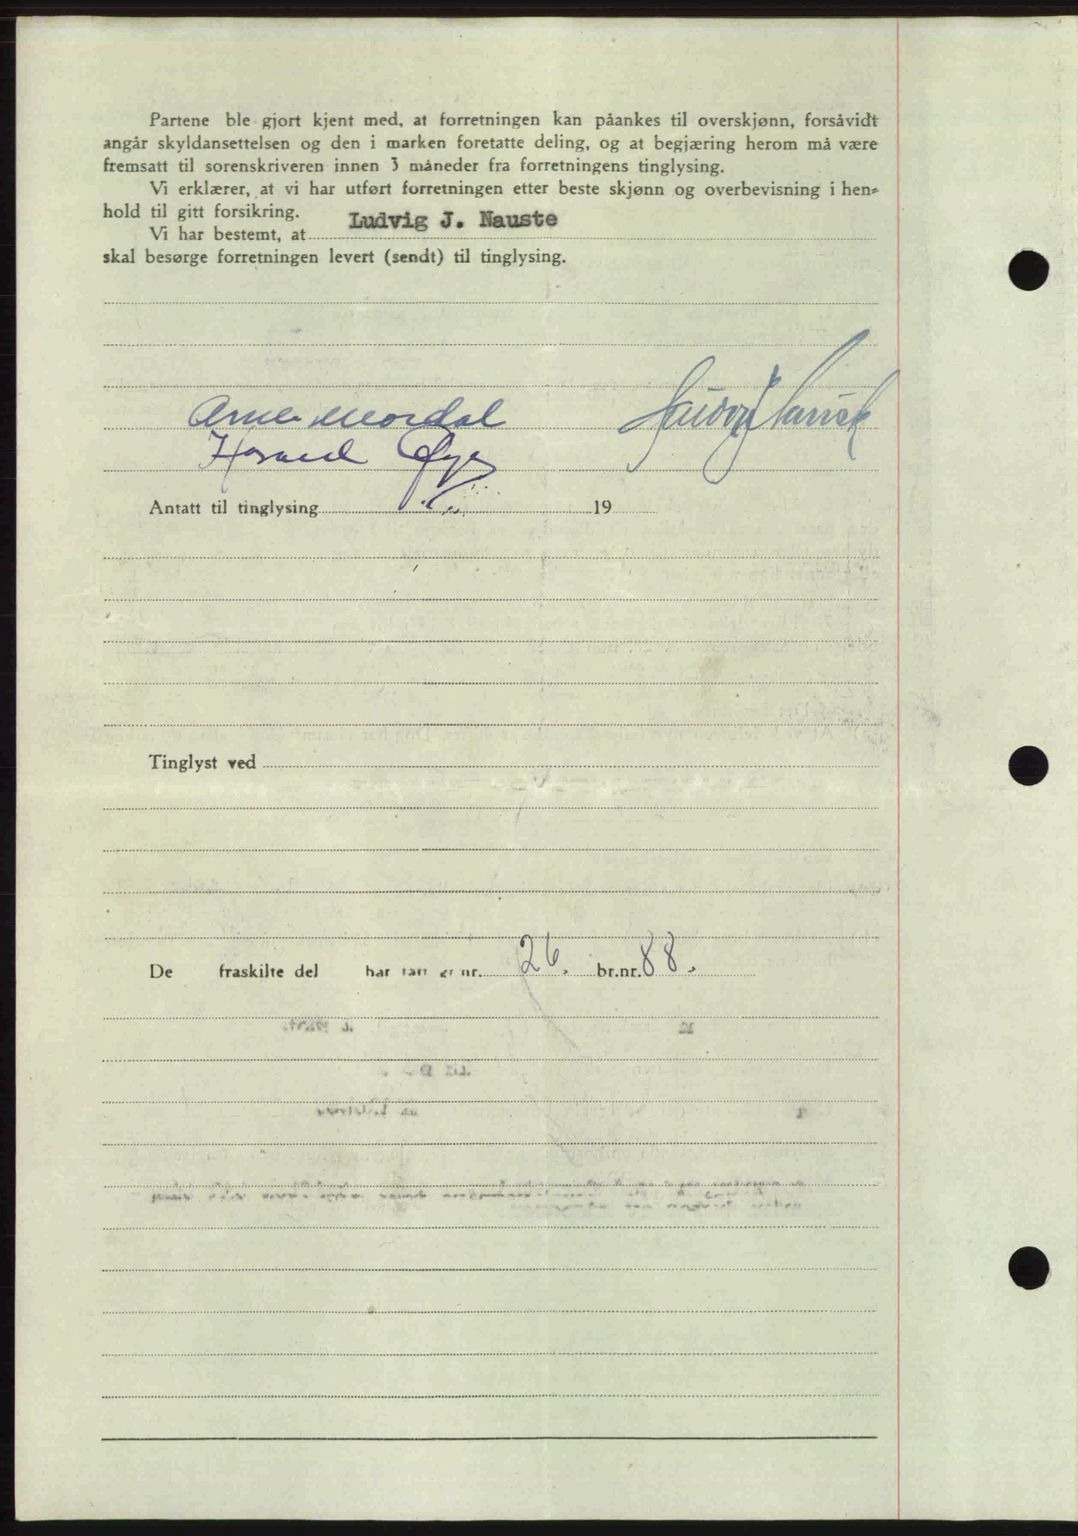 Partene ble gjort kjent med, at forretningen kan påankes til overskjønn, forsåvidt
angår skyldansettelsen og den i marken foretatte deling, og at begjæring herom må være
fremsatt til sorenskriveren innen 3 måneder fra forretningens tinglysing.
Vi erklærer, at vi har utført forretningen etter beste skjønn og overbevisning i hen-
hold til gitt forsikring.
Vi har bestemt, at Ludvig J. Nauste
skal besørge forretningen levert (sendt) til tinglysing.
Arne Mordal
Øye
Antatt til tinglysing 19
Tinglyst ved
De fraskilte del har fått gr.nr. 26. br.nr. 88.